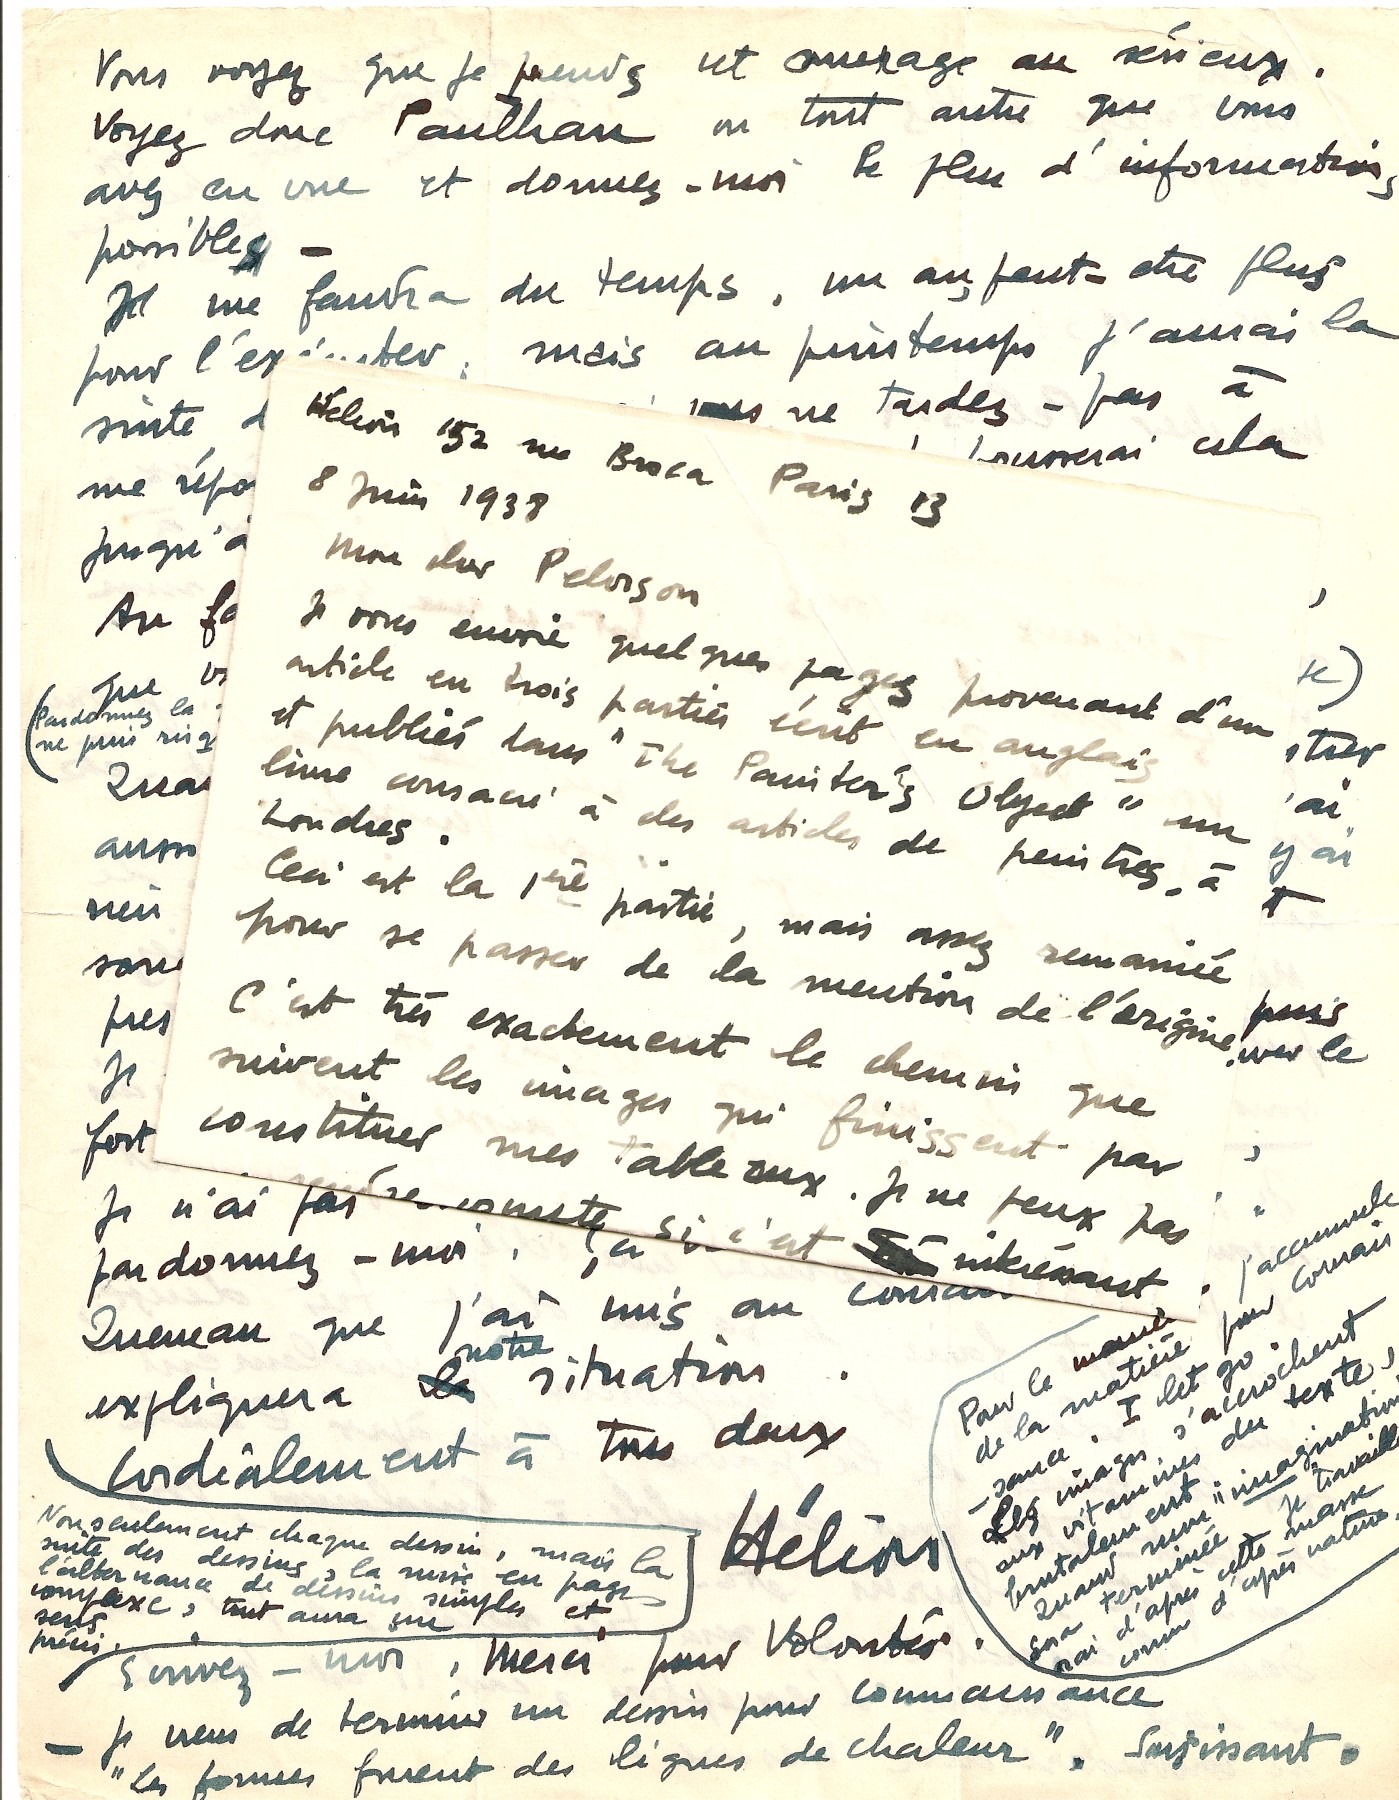 Vous voyez que je prends cet ouvrage au sérieux.
Voyez donc Paulhan ou tout autre que vous
avez en vue et donnez-moi le plus d'informations
possibles -
Il me faudra du temps, un an, peut-être plus
pour l'ex ter, mais au printemps j'aurai la
suite d vous ne tardez - pas à
me répo pousserai cela
jusqu'à
Au fa
que v te)
(Pardonnez la
ne puis risq strer
Quan 'ai
auss y ai
rien
sans
pres puis
Je uver le
fort
Je n'ai pas
pardonnez-moi. Ça
Queneau que j'ai mis au couran
notre
expliquera la situation.
Cordialement à tous deux
Hélion
Non seulement chaque dessin, mais la
suite des dessins, la mise en page
l'alternance de dessins simples et
complexe, tout aura un
sens
précis.
Pour le moment j'accumule
de la matière pour Connais
-sance. I let go.
Les images s'accrochent
aux vitamines du texte,
brutalement
Quand mon "imagination"
sera terminée je travaille
rai d'après cette masse
comme d'après nature.
Ecrivez-moi, Merci pour Volontés.
- Je viens de terminer un dessin pour connaissance
"Les formes furent des lignes de chaleur". Surgissant.
Hélion 152 rue Broca Paris 13
8 Juin 1938
Mon cher Pelorson
Je vous envoie quelques pages provenant d'un
article en trois parties écrit en anglais
et publiés dans "The Painter's Object" un
livre consacré à des articles de peintres, à
Londres.
Ceci est la 1ère partie, mais assez remaniée
pour se passer de la mention de l'origine.
C'est très exactement le chemin que
suivent les images qui finissent par
constituer mes tableaux. Je ne peux pas
rendre compte si c'est intéressant